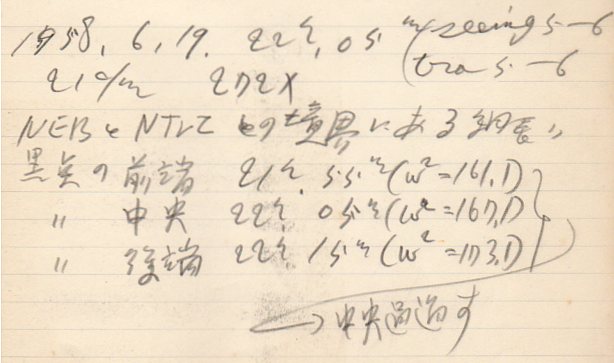 1958, 6, 19. 22h, 05m (seeing 5-6
21c/m 272X (tra 5-6
NEBとNTrZとの境界にある細長い
黒点の前端 21h. 55m (ω²=161.1)
〃 中央 22h. 05m (ω²=167.1)
〃 後端 22h. 15m (ω²=173.1)
→中央通過す